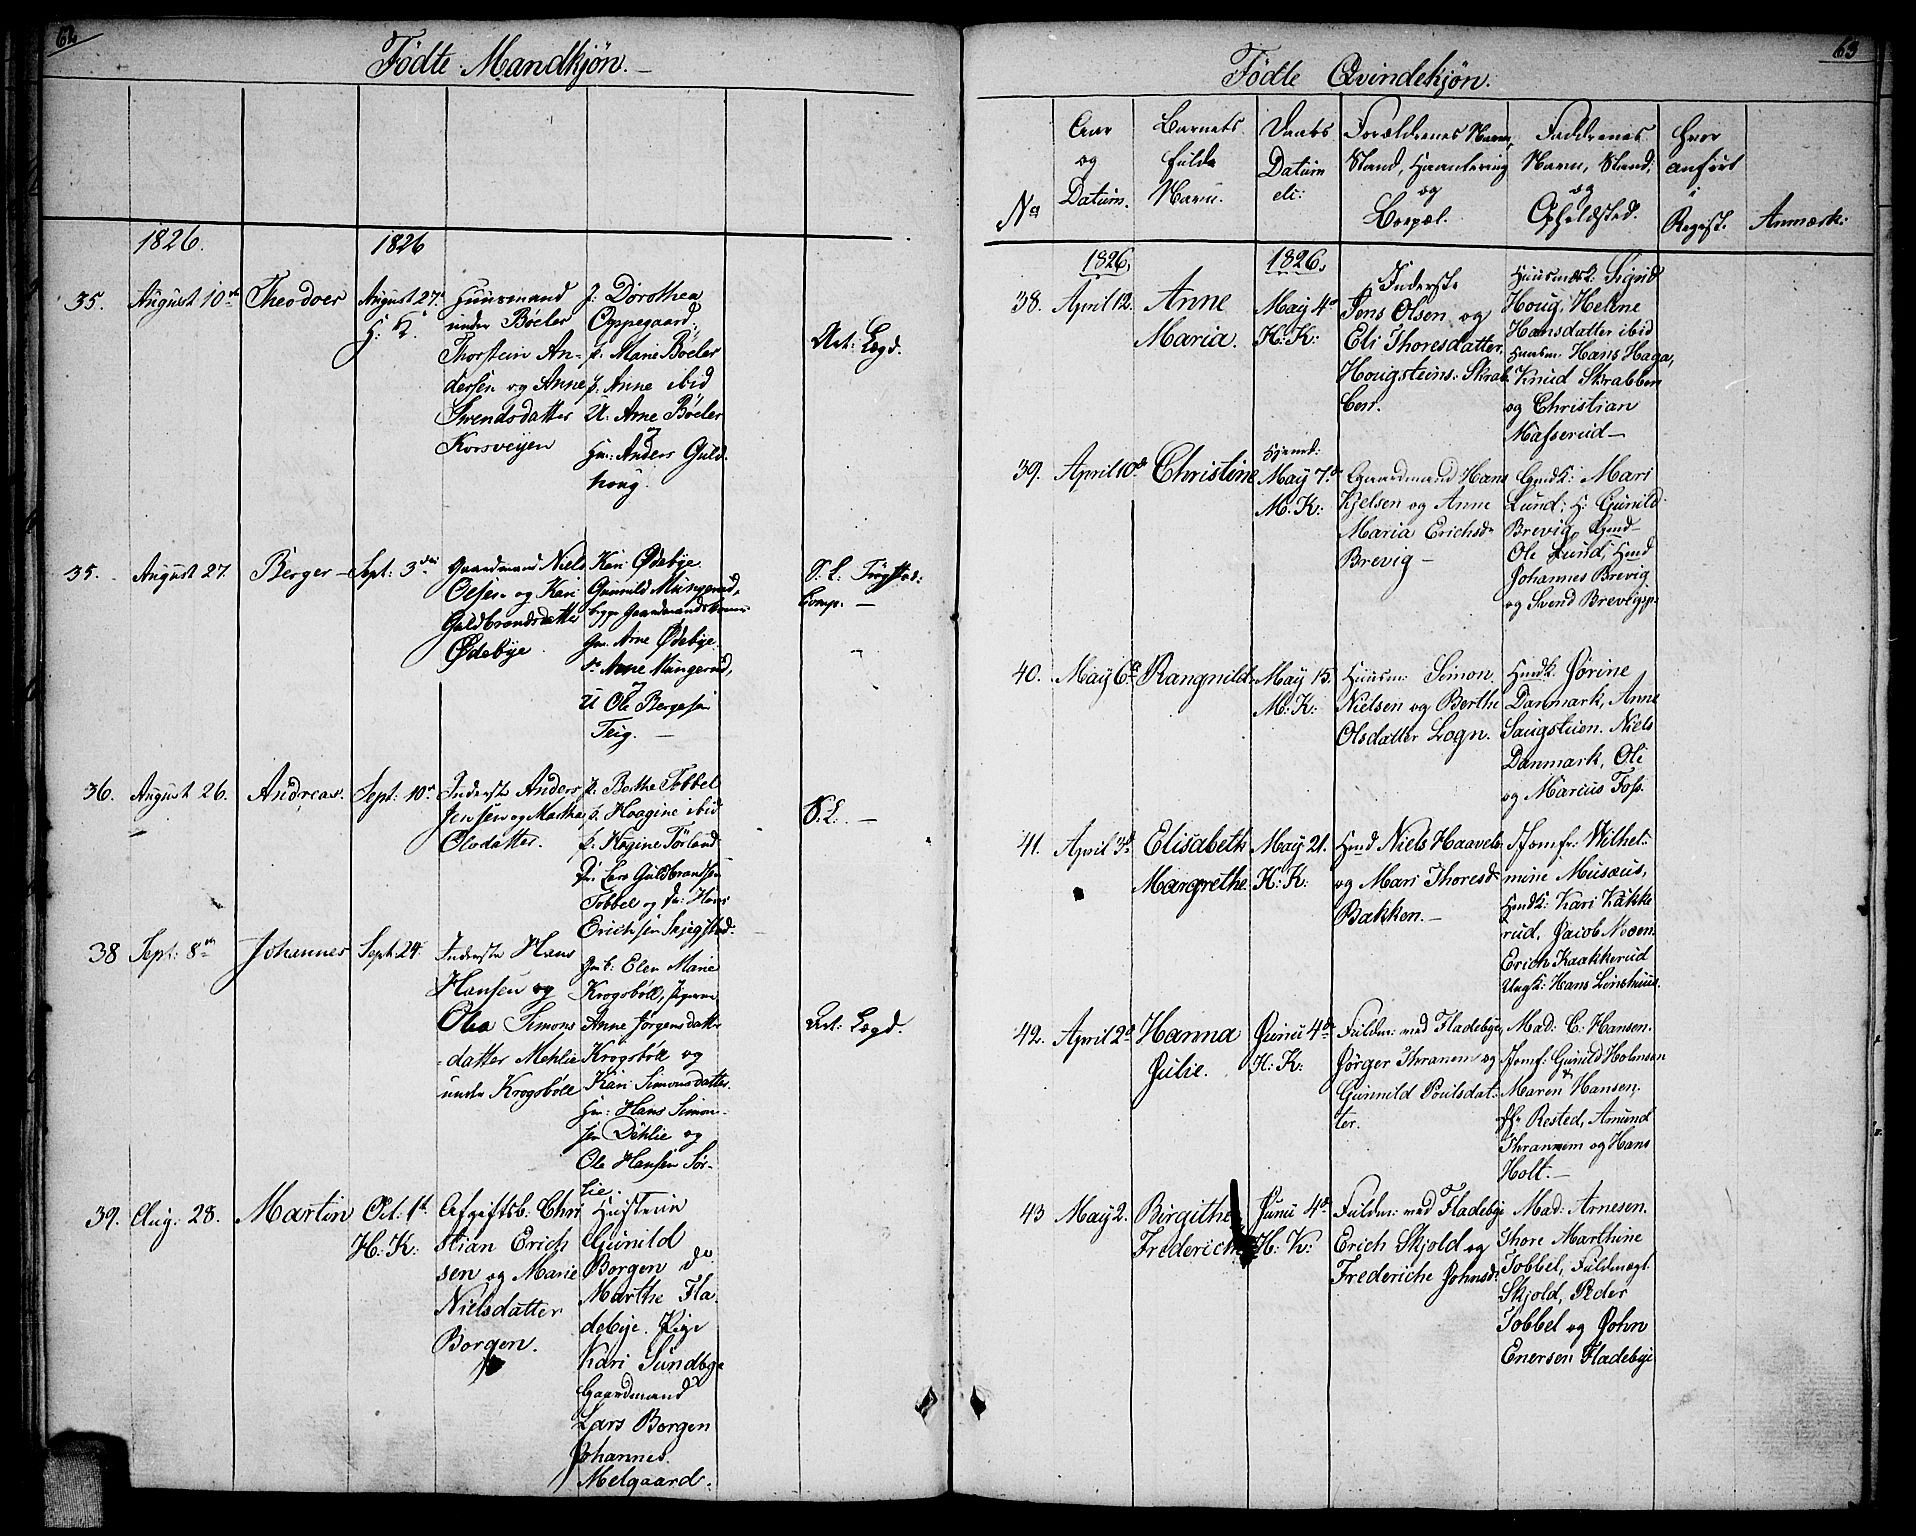 62
Födte Mandkjön.
1826.
1826
35.
August 10de
Theodoer
August 27.
H: K.
Huusmand
under Böeler
Thorstein An-
dersen og Anne
Svendsdatter
Korsveyen
p: Dorothea
Oppegaard,
p. Marie Böeler
p. Anne ibid
U: Arne Böeler
og
Hm: Anders Guld-
houg.
Act: Lægd.
35.
August 27.
Berger
Sept: 3die
Gaardmand Niels
Olsen og Kari
Guldbrandsdatter
Ödebye
Kari Ödebye
Gunnild Mungerud,
begge Gaardmandskoner
Gm. Arne Ödebye
Anne Mungerud,
og
U Ole Bergesen
Teig.
S: L:
Comp: —
36.
August 26.
Andreas.
Sept: 10de
Inderst Anders
Jensen og Marthe
Olsdatter.
p. Berthe Tobbel
p. Haagine ibid
p. Hagine Förland
Lars Guldbrandsen
Tobbel og Hans
Erichsen Skjegstad.
S: L: —
38
Sept: 8de
Johannes
Sept: 24.
Inderste Hans
Hansen og
Olea Simons
datter Mehlie
under Krogsböll
Gmk: Elen Marie
Krogsböll, pigerne
Anne Jörgensdatter
Krogsböll og
Kari Simonsdatter.
Hm: Hans Simon-
sen Dehlie og
Ole Hansen Sör-
lie.
Act: Lægd.
39.
Aug: 28.
Martin
Oct: 1te
H: K:
Afgiftsb: Chri
stian Erich
sen og Marie
Nielsdatter
Borgen.
Hustrue
Gunild
Borgen do
Marthe Fla
debye. Pige
Kari Sundbye
Gaardmand
Lars Borgen
Johannes
Melgaard.
63
Födte Qvindekjön.
No
Aar
og
Datum.
Barnets
fulde
Navn.
Daabs
Datum
etc:
Forældrenes Navn,
Stand, Haandtering
og
Bopæl.
Faddrenes
Navn, Stand,
og
Opholdsted.
Hvor
anfört
i
Regist.
Anmærk:
1826.
1826.
38.
April 12.
Anne
Maria.
May 4de
K: K:
Inderste
Jens Olsen og
Eli Thoresdatter,
Hougsteins: Skrab
ben.
Huusmdsk: Sigrid
Houg, Helene
Hansdatter ibid
Huusm: Hans Haga,
Knud Skrabben
og Christian
Masserud —
39.
April 10de
Christine
Hjemd:
May 7de
M: K:
Gaardmand Hans
Kjelsen og Anne
Maria Erichsd.
Brevig —
Gmdk: Mari
Lund; H: Gunild
Brevig, Gmd
Ole Lund, Hmd
Johannes Brevig
og Svend Brevigsp.
40.
May 6te
Rangnild
May 15.
M: K:
Huusm: Simon
Nielsen og Berthe
Olsdatter Logn.
Hmdk. Jörine
Danmark, Anne
Saugstuen. Niels
Danmark, Oli
og Marius Foss.
41.
April 3de
Elisabeth
Margrethe
May 21.
K: K:
Hmd Niels Haavels:
og Mari Thoresd
Bakken. —
Jomfr: Wilhel:
mine Musæus,
Hmdk: Kari Kakke
rud, Jacob Moen
Erich Kaakkerud
Ungk: Hans Linshuus.
42.
April 2d
Hanna
Julie.
Junii 4de
H: K:
Fuldm: ved Fladebye
Jörger Thranem og
Gunnild Poulsdat:
ter.
Mad. C: Hansen.
Jomf: Gunild Holmsen
Maren Hansen,
Hr Rested, Amund
Thranem og Hans
Holt. —
43
May 2.
Birgithe
Frederiche
Junii 4de
H: K:
Fuldm: ved Fladebye
Erich Skjold og
Frederiche Johnsd:
Mad: Arnesen.
Thore Marthine
Tobbel, Fuldmægt.
Skjold, Peder
Tobbel og John
Enersen Fladebye